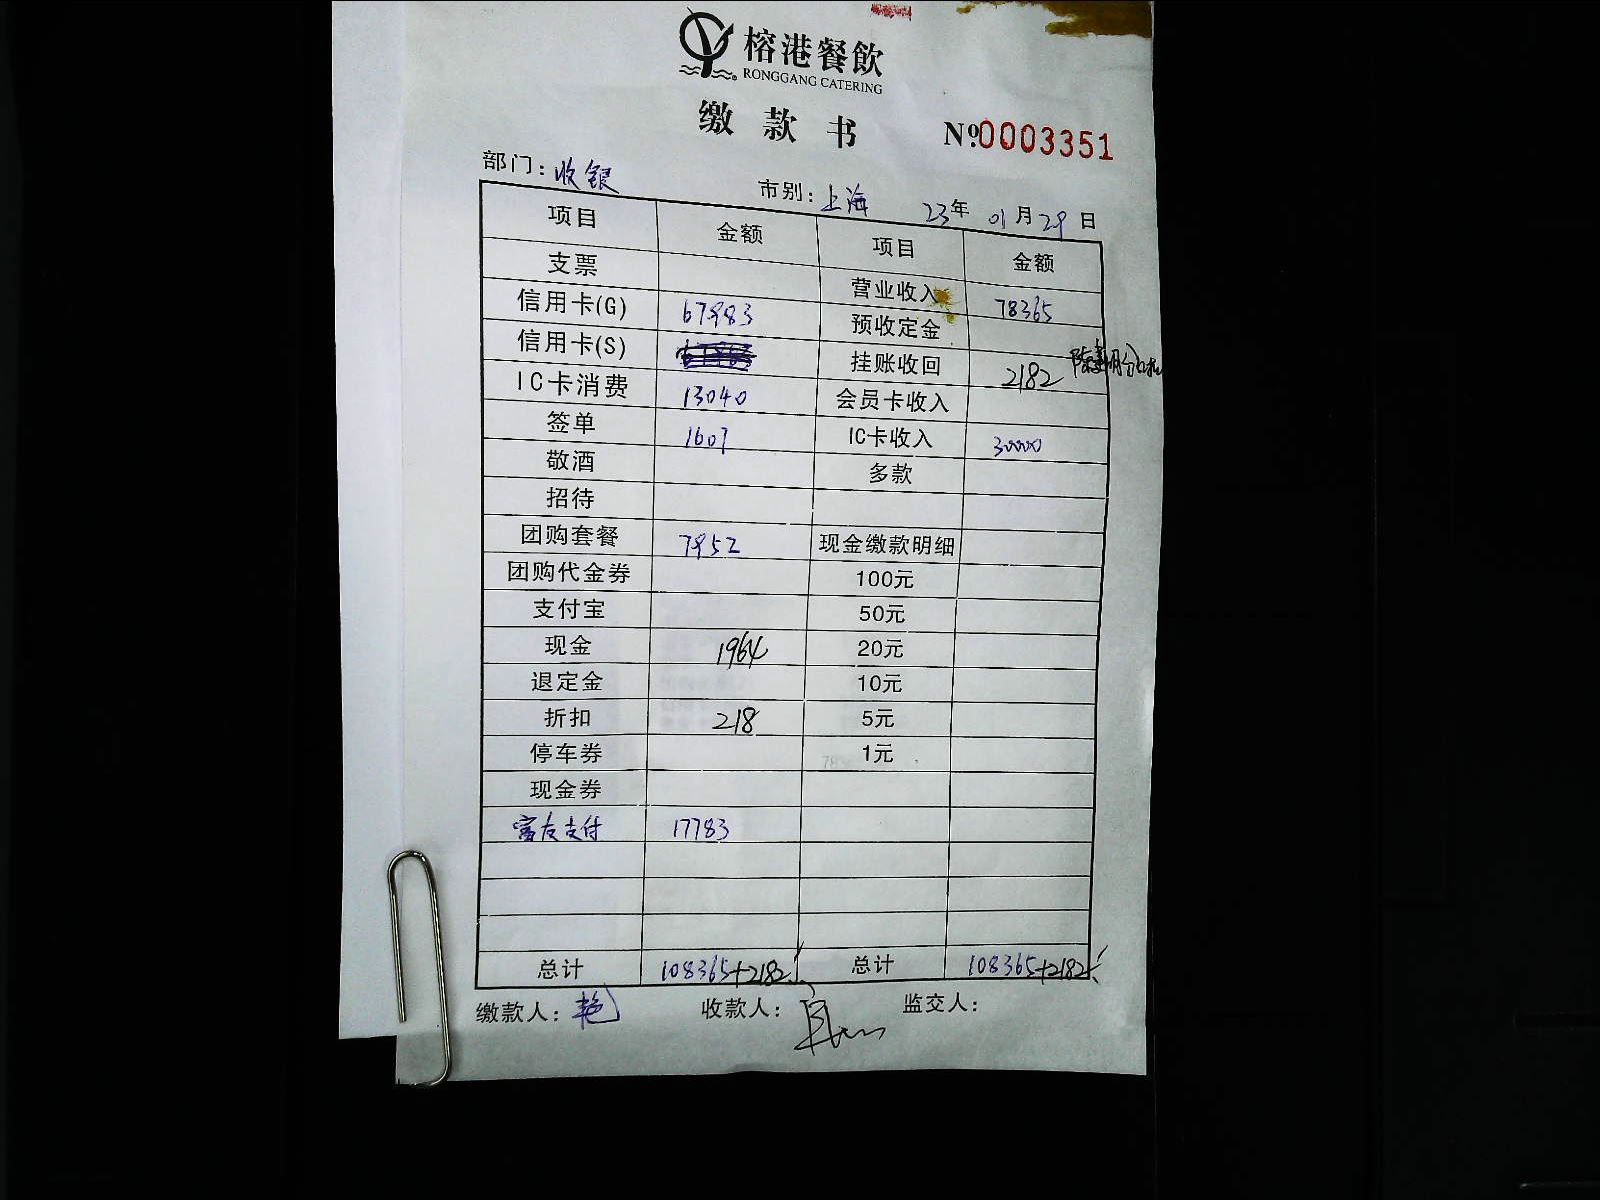 榕港餐飲
RONGGANG CATERING
缴款书 №0003351
部门：收银 市别：上海 23年01月29日
项目 金额 项目 金额
支票 营业收入 78365
信用卡(G) 67983 预收定金
信用卡(S) 挂账收回 2182
IC卡消费 13040 会员卡收入
签单 1607 IC卡收入 30000
敬酒 多款
招待
团购套餐 7952 现金缴款明细
团购代金券 100元
支付宝 50元
现金 1964 20元
退定金 10元
折扣 218 5元
停车券 1元
现金券
富友支付 17783
总计 108365+2182 总计 108365+2182
缴款人：艳 收款人： 监交人：